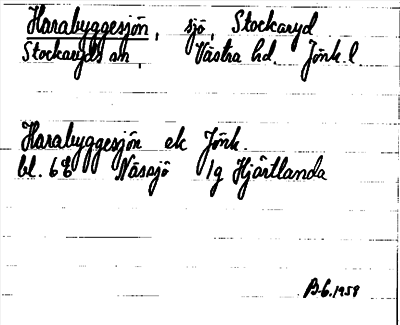 Harabyggesjön, sjö, Stockaryd
Stockaryds sn, Västra hd. Jönk. l
Harabyggesjön ek Jönk.
bl. 6E Nässjö 1g Hjärtlanda
B-6.1959